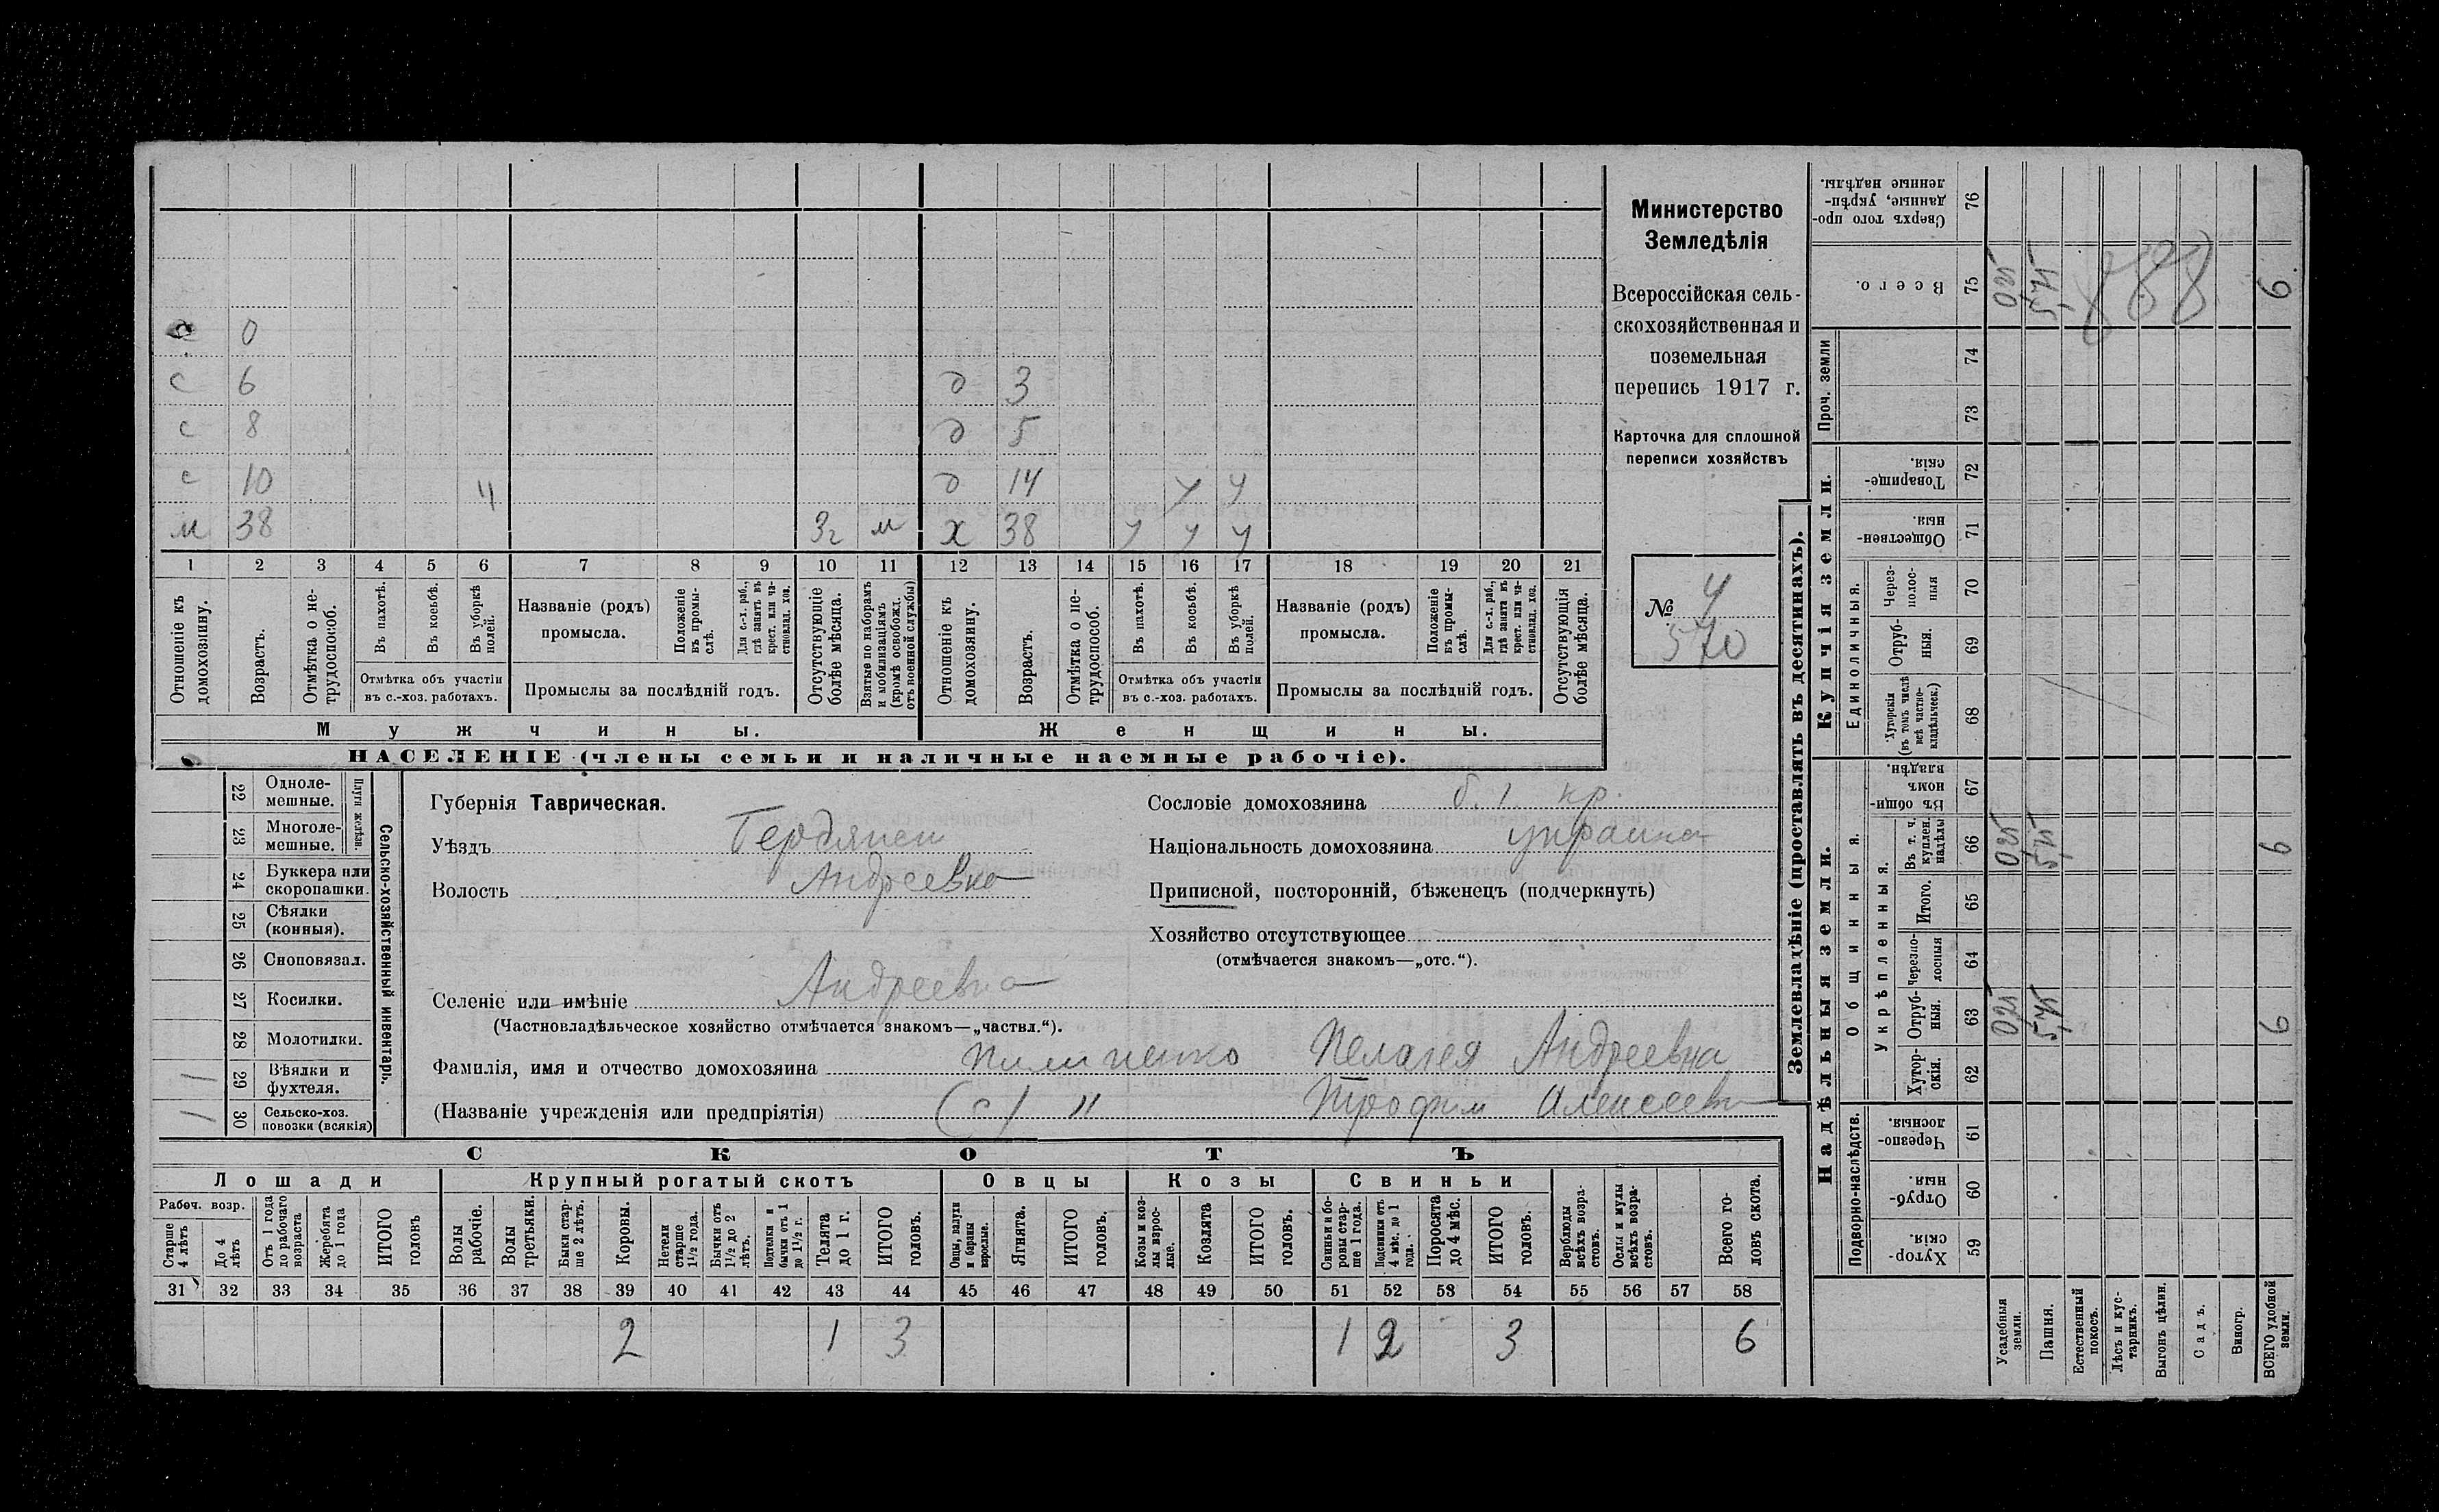 Министерство
Земледѣлія
Всероссійская сель-
скохозяйственная и
поземельная
перепись 1917 г.
Карточка для сплошной
переписи хозяйствъ
№ 4
570
0
с 6 д 3
с 8 д 5
с 10 ч д 14 у у
м 38 3г м х 38 у у у
1 2 3 4 5 6 7 8 9 10 11 12 13 14 15 16 17 18 19 20 21
Отношеніе къ домохозяину.
Возрастъ.
Отмѣтка о не-трудоспособ.
Въ пахотѣ.
Въ косьбѣ.
Въ уборкѣ полей.
Отмѣтка объ участіи
въ с.-хоз. работахъ.
Названіе (родъ)
промысла.
Положеніе въ промы-слѣ.
Для с.-х. раб., гдѣ занятъ въ крест. или ча-стновлад. хоз.
Промыслы за послѣдній годъ.
Отсутствующіе болѣе мѣсяца.
Взятые по наборамъ и мобилизаціямъ (кромѣ освобожд. отъ военной службы)
Отношеніе къ домохозяину.
Возрастъ.
Отмѣтка о не-трудоспособ.
Въ пахотѣ.
Въ косьбѣ.
Въ уборкѣ полей.
Отмѣтка объ участіи
въ с.-хоз. работахъ.
Названіе (родъ)
промысла.
Положеніе въ промы-слѣ.
Для с.-х. раб., гдѣ занята въ крест. или ча-стновлад. хоз.
Промыслы за послѣдній годъ.
Отсутствующія болѣе мѣсяца.
Мужчины. Женщины.
НАСЕЛЕНІЕ (члены семьи и наличные наемные рабочіе).
22 Одноле-мешные.
23 Многоле-мешные.
Плуги желѣзн.
24 Буккера или скоропашки.
25 Сѣялки (конныя).
26 Сноповязал.
27 Косилки.
28 Молотилки.
1 29 Вѣялки и фухтеля.
1 30 Сельско-хоз. повозки (всякія)
Сельско-хозяйственный инвентарь.
Губернія Таврическая.
Уѣздъ Бердянск
Волость Андреевка
Селеніе или имѣніе Андреевка
(Частновладѣльческое хозяйство отмѣчается знакомъ—„частвл.“).
Фамилія, имя и отчество домохозяина Пилипенко Пелагея Андреевна
(Названіе учрежденія или предпріятія) (с) " Трофим Алексеев
Сословіе домохозяина б. 1 кр.
Національность домохозяина украина
Приписной, посторонній, бѣженецъ (подчеркнуть)
Хозяйство отсутствующее
(отмѣчается знакомъ—„отс.“).
СКОТЪ
Лошади Крупный рогатый скотъ Овцы Козы Свиньи
Рабоч. возр.
Старше 4 лѣтъ
До 4 лѣтъ
Отъ 1 года до рабочаго возраста
Жеребята до 1 года
ИТОГО головъ
Волы рабочіе.
Волы третьяки.
Быки стар-ше 2 лѣтъ.
Коровы.
Нетели старше 1½ года.
Бычки отъ 1½ до 2 лѣтъ.
Подтелки и бычки отъ 1 до 1½ г.
Телята до 1 г.
ИТОГО головъ.
Овцы, валухи и бараны взрослые.
Ягнята.
ИТОГО головъ.
Козы и коз-лы взрос-лые.
Козлята
ИТОГО головъ.
Свиньи и бо-ровы стар-ше 1 года.
Подсвинки отъ 4 мѣс. до 1 года.
Поросята до 4 мѣс.
ИТОГО головъ.
Верблюды всѣхъ возра-стовъ.
Ослы и мулы всѣхъ возра-стовъ.
Всего го-ловъ скота.
31 32 33 34 35 36 37 38 39 40 41 42 43 44 45 46 47 48 49 50 51 52 53 54 55 56 57 58
2 1 3 1 2 3 6
Землевладѣніе (проставлять въ десятинахъ).
Надѣльныя земли. Купчія земли.
Проч. земли
Подворно-наслѣдств.
Общинныя.
Укрѣпленныя.
Единоличныя.
Хутор-скія. 59
Отруб-ныя. 60
Черезпо-лосныя. 61
Хутор-скія. 62
Отруб-ныя. 63
Черезпо-лосныя 64
Итого. 65
Въ т. ч. куплен. надѣлы 66
Въ общи-номъ владѣн. 67
Хуторскія (въ томъ числѣ всѣ частно-владѣльческ.) 68
Отруб-ныя. 69
Через-полос-ныя 70
Обществен-ныя. 71
Товарище-скія. 72
73
74
Всего. 75
Сверхъ того про-данные, укрѣп-ленные надѣлы. 76
Усадебныя земли. 025 025 025
Пашня. 575 575 575
Естественный покосъ.
Лѣсъ и кус-тарникъ.
Выгонъ цѣлин.
Садъ.
Виногр.
ВСЕГО удобной земли. 6 6 6